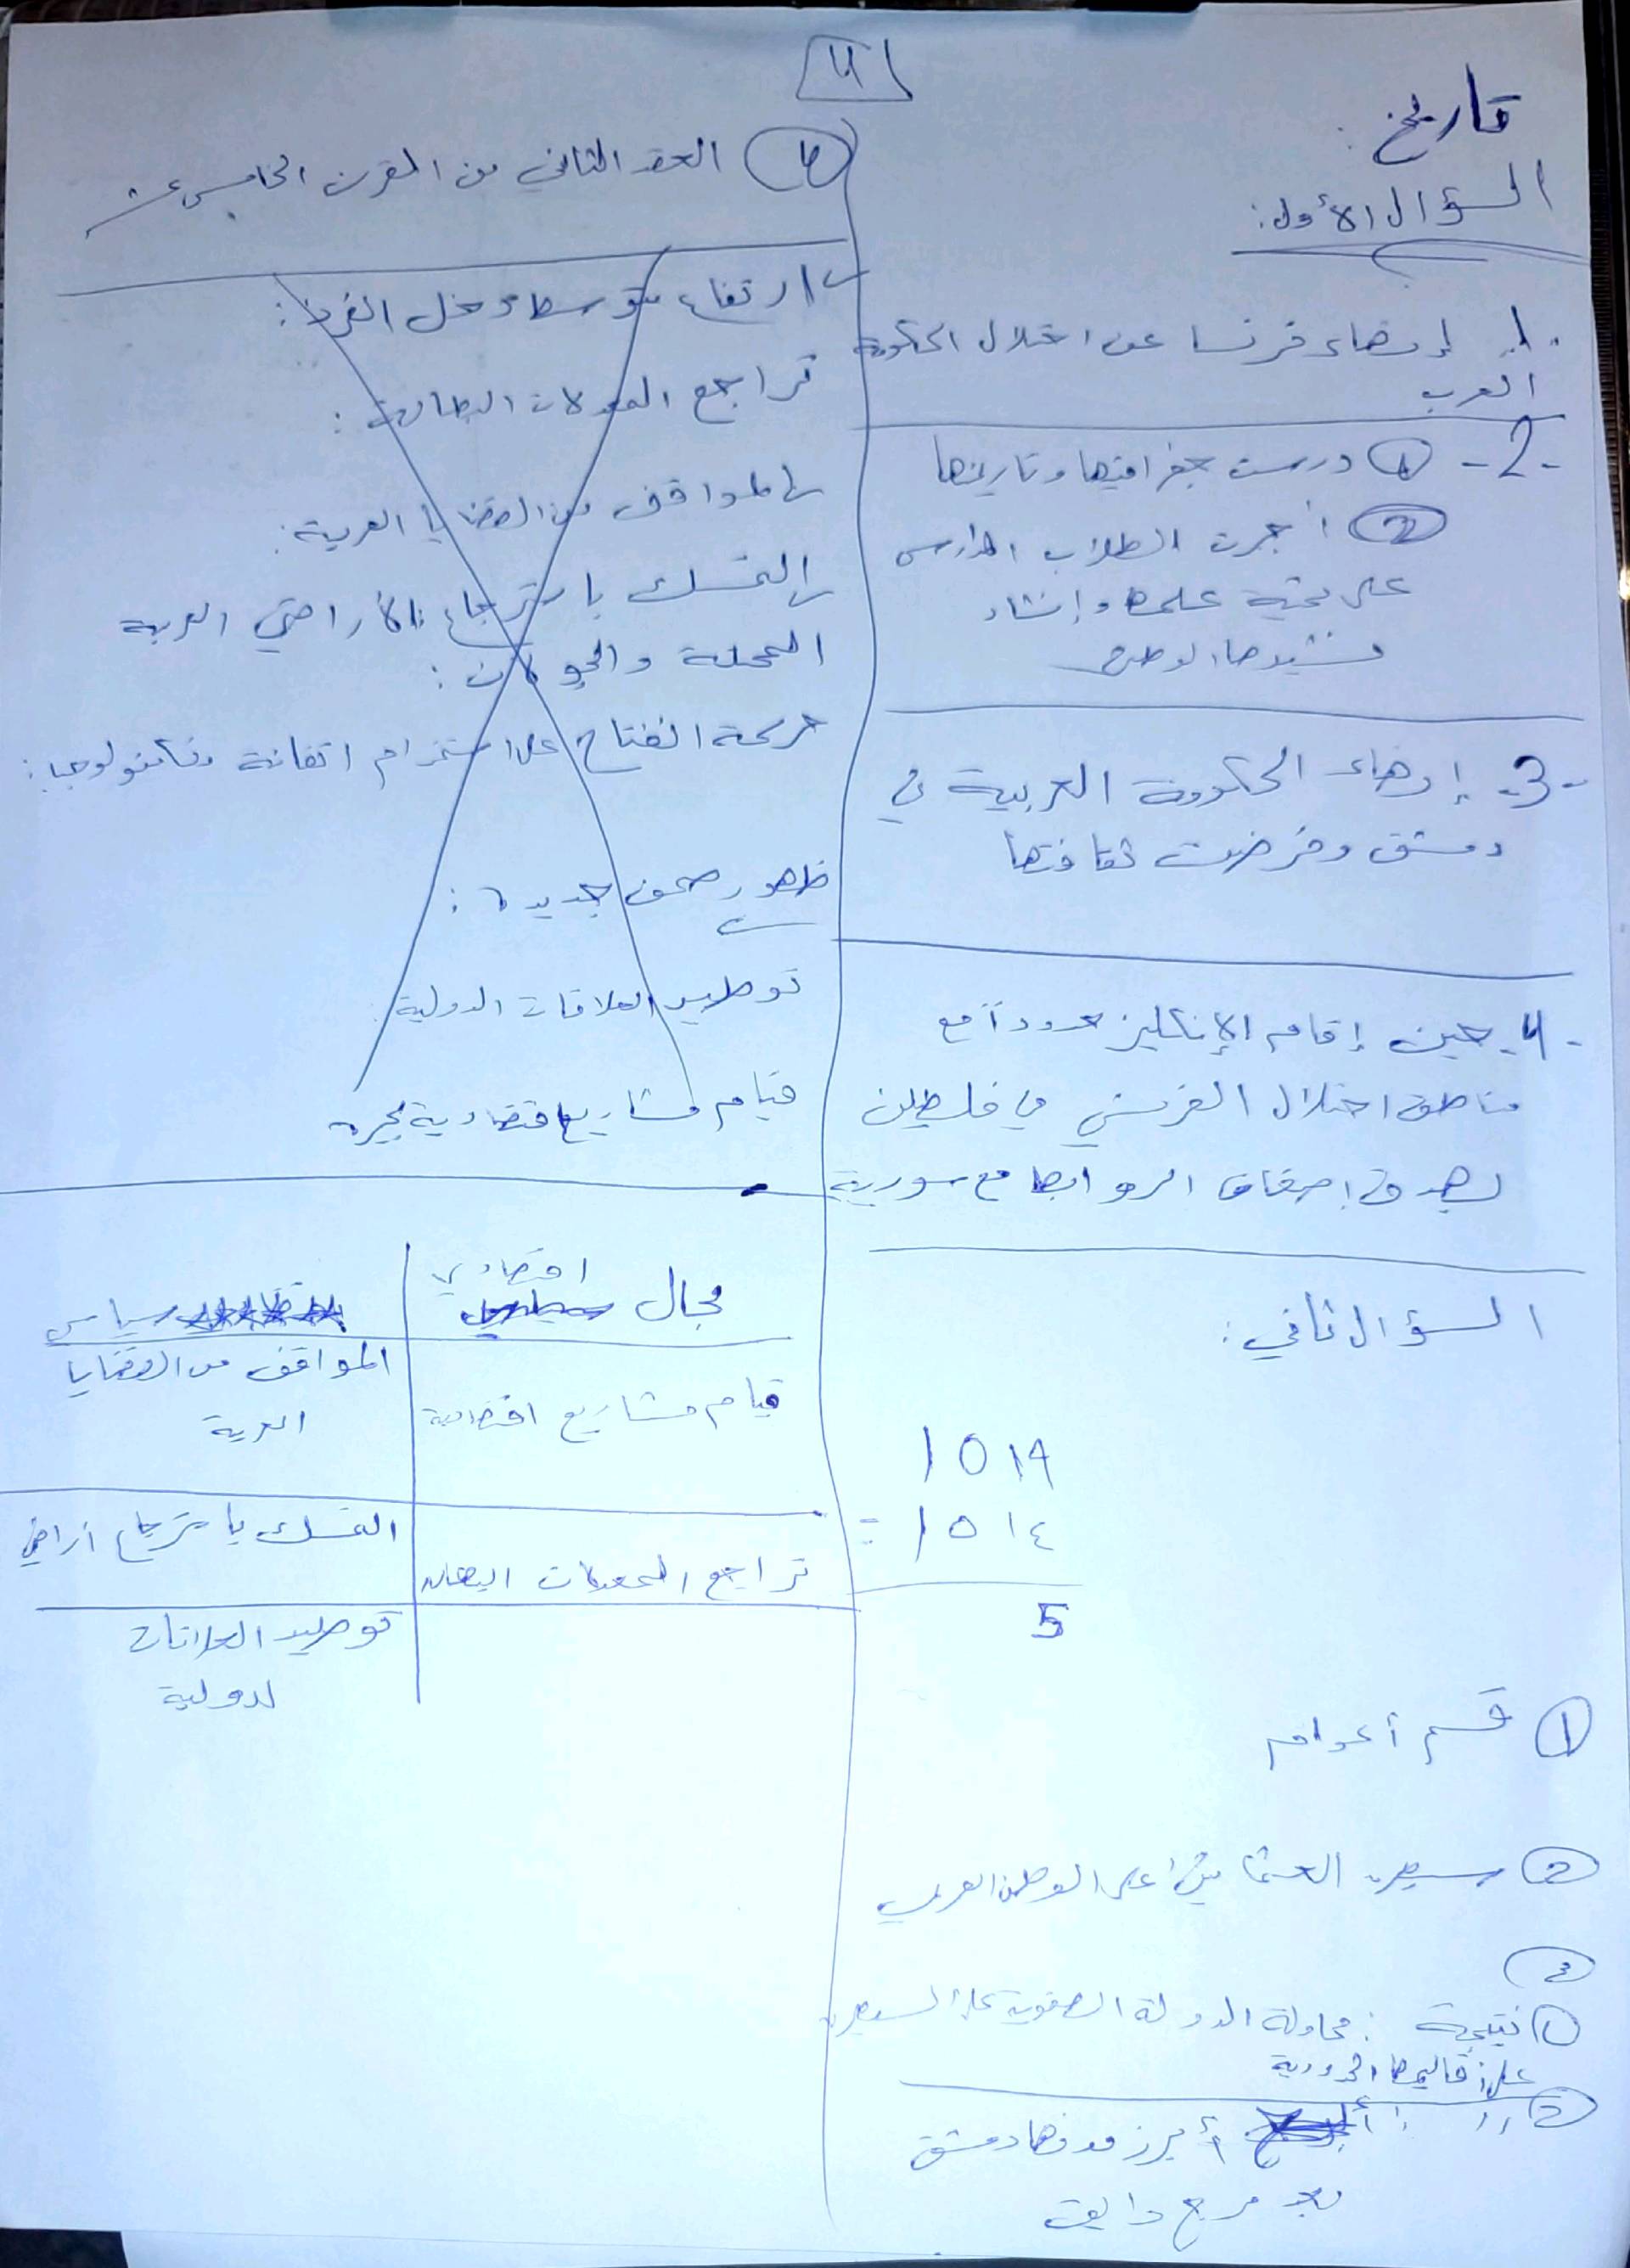 4
تاريخ :
السؤال الأول:
1. إنهاء فرنسا عن احتلال الحكومة
العرب
-2- ① درست جغرافيتها وتاريخها
② أجبرت الطلاب المدارس
على تحية علمها وإنشاد
نشيدها الوطني
-3- إنهاء الحكومة العربية في
دمشق وفرضت ثقافتها
-4- حين إقام الإنكليز حدوداً مع
مناطق احتلال الفرنسي في فلسطين
بهدف إضعاف الروابط مع سورية
السؤال ثاني:
1519
- 1514
5
① قسم أعوام
② سيطرة العثمانين على الوطن العربي
③
① نتيجة : محاولة الدولة الصفوية على السيطرة
على أقاليمها الحدودية
② // : أبرز مدنها دمشق
بعد مرج دابق
④ العقد الثاني من القرن الخامس عشر
ارتفاع متوسط دخل الفرد:
تراجع المعدلات البطالة:
المواقف من القضايا العربية:
التمسك باسترجاع الأراضي العربية
المحتلة والجولان:
حركة انفتاح على استخدام اتقانة وتكنولوجيا:
ظهور صحف جديدة:
توطيد العلاقات الدولية:
قيام مشاريع اقتصادية كبيرة
مجال اقتصادي
سياسي
قيام مشاريع اقتصادية
المواقف من القضايا
العربية
تراجع المعدلات البطالة
التمسك باسترجاع أراضي
توطيد العلاقات
لدولية